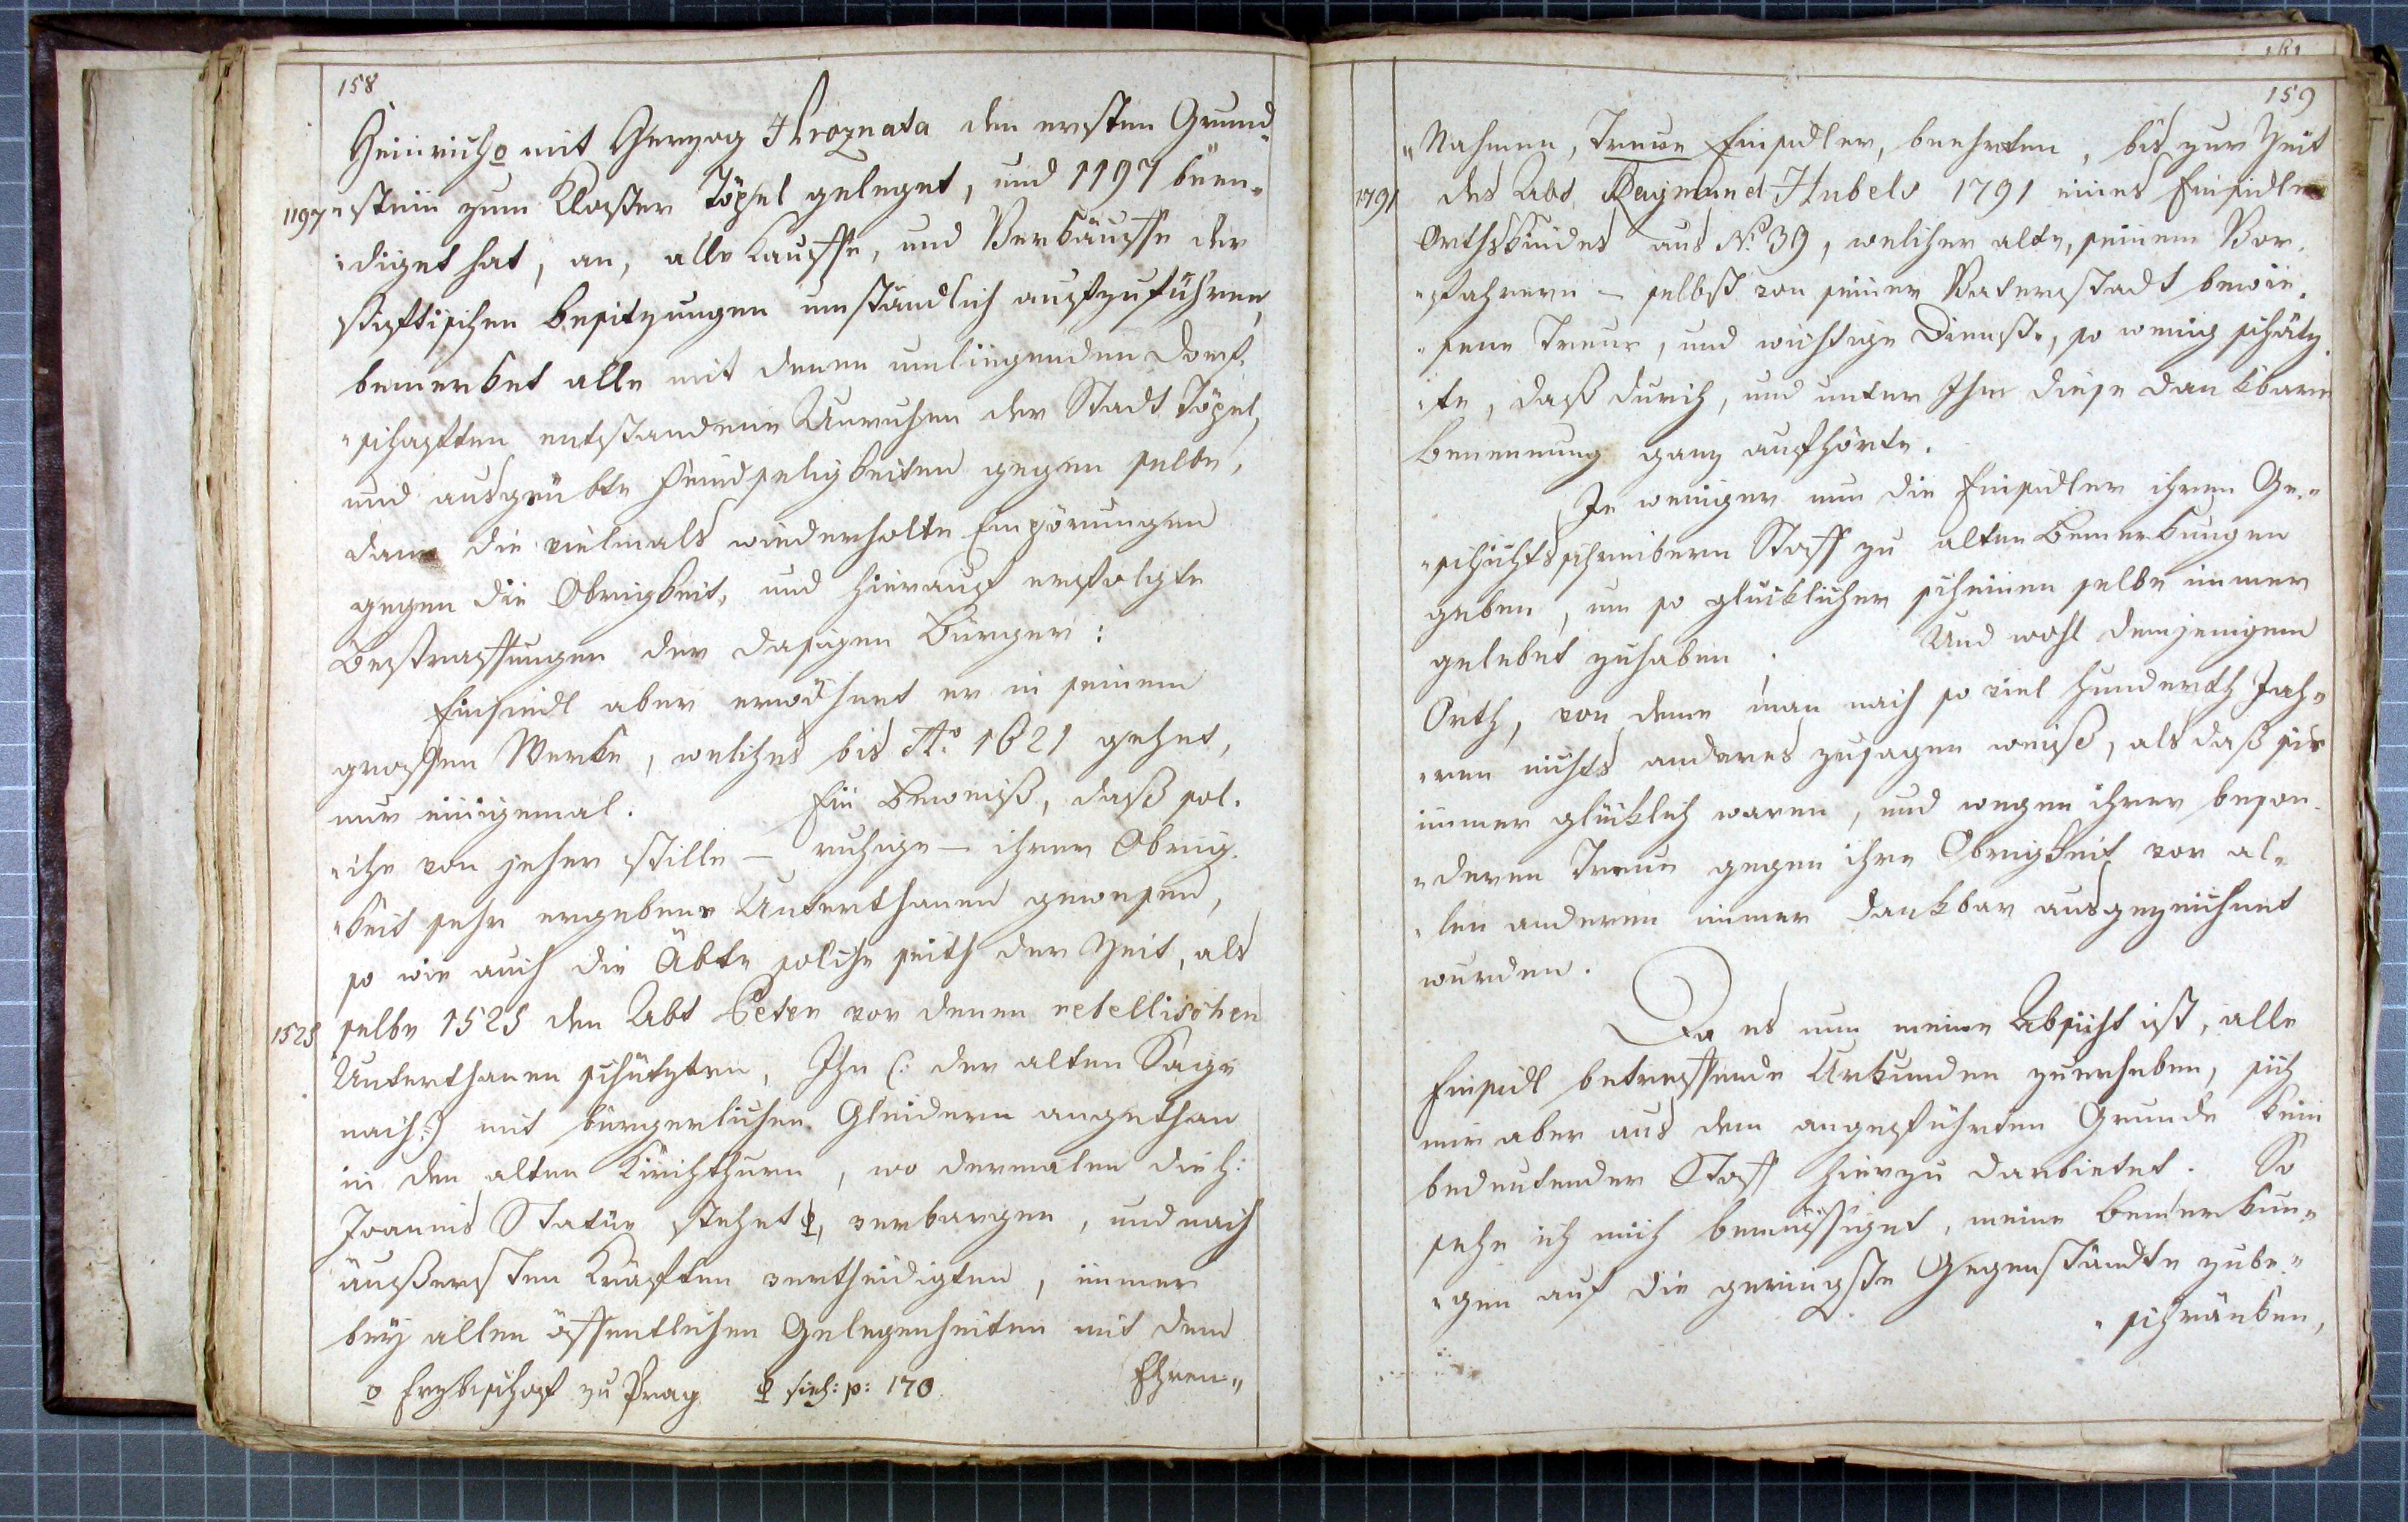 158
Heinrich o mit Herzog Hroznata den ersten Grund-
1197 "stein zum Kloster Töpel geleget, und 1197 been-
"diget hat, an, alle Kauffe, und Verkäuffe der
stiftischen Besitzungen umständlich aufzuführen,
bemerket alle mit denen umliegenden Dorf-
"schaften entstandene Unruhen der Stadt Töpel,
und ausgeübte Feindseligkeiten gegen selbe,
dann die vielmals wiederholte Empörungen
gegen die Obrigkeit, und hierauf erfolgte
Bestraffungen der dasigen Bürger:
Einsiedl aber erwöhnet er in seinem
grossen Werke, welches bis Ao. 1621 gehet,
nur einigemal. Ein Beweiß, daß sol-
"che von jeher stille – ruhige – ihrer Obrig-
"keit sehr ergebene Unterthanen gewesen,
so wie auch die Äbte solche seith der Zeit, als
1525 selbe 1525 den Abt Peter vor denen rebellischen
Unterthanen schützten, Ihn (: der alten Sage
nach :) mit bürgerlichen Gleidern angethan
in den alten Kirchthurn, wo dermalen die h:
Joannis Statüe stehet, verbargen, und nach
äußersten Kräften vertheidigten, immer
bey allen öffentlichen Gelegenheiten mit dem
o Erzbischof zu Prag sieh: p: 170. Ehren-"
159
"Nahmen, Treue Einsidler, beehrten, bis zur Zeit
1791 des Abt Raymund Hubels 1791 eines Einsidler
Orthskindes aus No. 39, welcher alte, seinem Vor-
"fahrern – selbst von seiner Vaterstadt bewie-
"sene Treue, und wichtige Dienste, so wenig schätz-
"te, daß durch, und unter Ihm diese dankbare
Benennung ganz aufhörte.
Je weniger nun die Einsidler ihren Ge-"
"schichtsschreibern Stoff zu alten Bemerkungen
geben, um so glücklicher scheinen selbe immer
gelebet zuhaben. Und wohl demjenigem
Orth, von deme man nach so viel hunderth Jah-"
"ren nichts anderes zusagen weiß, als daß sie
immer glücklich waren, und wegen ihrer beson-
"deren Treue gegen ihre Obrigkeit vor al-"
"len anderen immer dankbar ausgezeichnet
wurden.
Da es nun meine Absicht ist, alle
Einsidl betreffende Urkunden zuerheben, sich
mir aber aus dem angeführten Grunde kein
bedeutender Stoff hierzu darbietet. So
sehe ich mich bemüssiget, meine Bemerkun-"
"gen auf die geringste Gegenstände zube-"
"schränken,